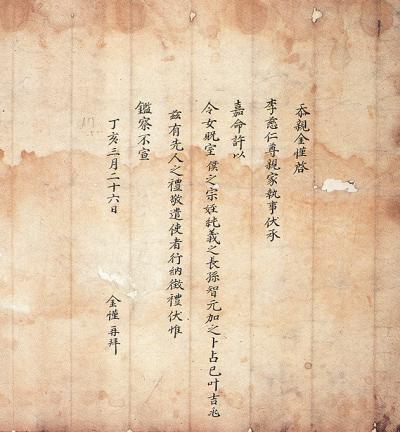 忝親金僅啓
李慈仁尊親家執事伏承
嘉命許以
令女貺室僕之宗姪純義之長孫智元加之卜占已叶吉兆
玆有先人之禮敬遣使者行納徵禮伏惟
鑑察不宣
丁亥三月二十六日 金僅再拜